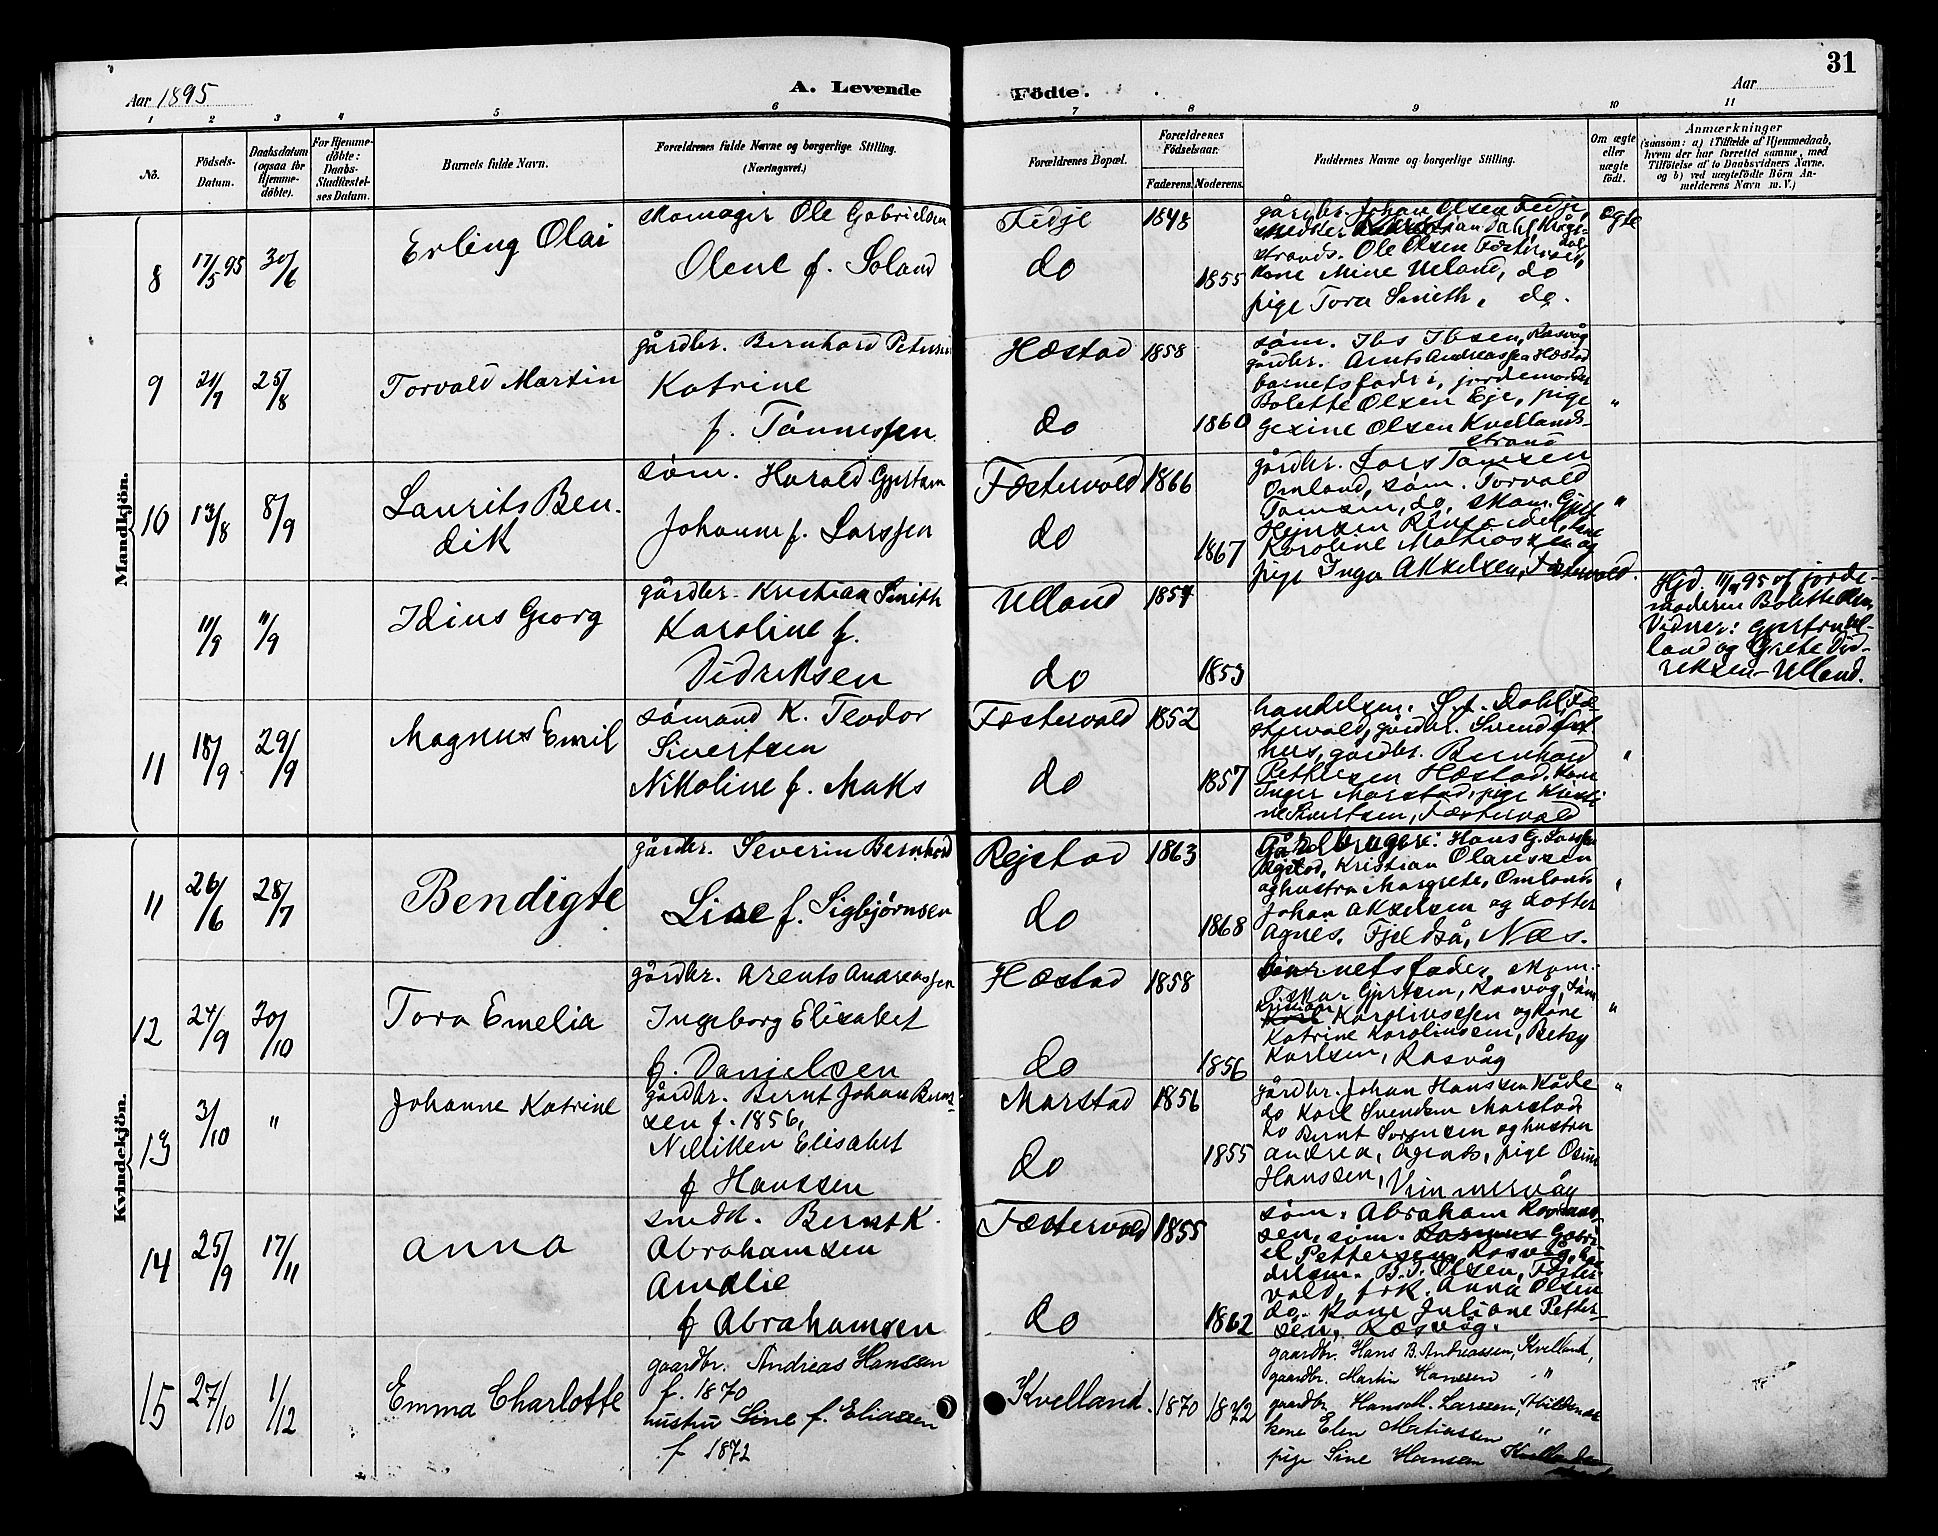 31
Aar 1895
A. Levende
Födte.
Aar
1 2 3 4 5 6 7 8 9 10 11
No.
Födsels-Datum.
Daabsdatum (ogsaa for Hjemme-döbte).
For Hjemme-döbte: Daabs-Stadfæstel-ses Datum.
Barnets fulde Navn.
Forældrenes fulde Navne og borgerlige Stilling. (Næringsvei.)
Forældrenes Bopæl.
Forældrenes Födselsaar.
Faderens. Moderens.
Faddernes Navne og borgerlige Stilling.
Om ægte eller uægte födt.
Anmærkninger
(saasom: a) i Tilfælde af Hjemmedaab, hvem der har forrettet samme, med Tilföielse af to Daabsvidners Navne, og b) ved uægtefödte Börn An-melderens Navn m. V.)
Mandkjön.
8 17/5 95 30/6 Erling Olai
skomager Ole Gabrielsen
Olene f. Soland
Fedje 1848
do 1855
gårdbr. Johan Olsen Fedje,
strands. Ole Olsen
kone Mine Ueland, do
pige Tora Smith, do.
Ægte
9 21/7 25/8 Torvald Martin
gårdbr. Bernhard Petersen
Katrine
f. Tönnessen
Hæstad 1858
do 1860
söm. Ibs Ibsen, Rasvåg
gårdbr. Arnts Andreassen Hæstad
barnets fader, jordemoder
Bolette Olsen Eje, pige
Gesine Olsen Kvellands-
strand
"
10 13/8 8/9 Laurits Ben-
dik
söm. Harald Gjertsen
Johanne f. Larssen
Fæstervold 1866
do 1867
gårdbr. Lars Tomsen
Omland, söm. Torvald
Tomsen, do, skom.
Karoline
pige Inga Akselsen, Fæstervold.
"
11/9 11/9 Idius Georg
gårdbr. Kristian Smith
Karoline f.
Didriksen
Ulland 1857
do 1853
Hjd. 11/9 95 af jorde-
moderen Bolette Olsen
Vidner:
land og Grete Did-
riksen Ulland.
11 18/9 29/9 Magnus Emil
sömand K. Teodor
Sivertsen
Nikoline f. Maks
Fæstervold 1852
do 1857
handelsm. Dahl, Fæ-
stervold, gårdbr. Svend
hus, gårdbr. Bernhard
Pettersen Hæstad, kone
Inger Marstad, pige Kristi-
ne Sivertsen, Fæstervold
"
Kvindekjön.
11 26/6 28/7 Bendigte
gårdbr. Severin Bernhard
Lise f. Sigbjörnsen
Rejstad 1863
do 1868
Gårdbrugere: Hans G. Larssen
Rejstad, Kristian Olaussen
og hustru Margrete, Omland
Johan Akselsen og dotter
Agnes, Fjeldså, Næs.
"
12 24/9 20/10 Tora Emelia
gårdbr. Arents Andreassen
Ingeborg Elisabet
f. Danjelsen
Hæstad 1858
do 1856
barnets fader, skom.
Oskar Gjertsen, Rasvåg, söm
Kristian
Karoliussen og kone
Katrine Karoliussen, Betsy
Karlsen, Rasvåg
"
13 3/10 " Johanne Katrine
gårdbr. Bernt Johan Bernt-
sen f. 1856,
Nilliken Elisabet
f Hanssen
Marstad 1856
do 1855
gårdbr. Johan Hanssen Kåde
do Karl Svendsen Marstad
do Bernt Sörensen og hustru
Andrea, Agnes, pige
Hanssen,
"
14 25/9 17/11 Anna
smed. Bernt K.
Abrahamsen
Amalie
f Abrahamsen
Fæstervold 1855
do 1862
söm. Abraham
sen, söm. Gabri-
el Pettersen, Rasvåg, han-
delsm. B. T. Olsen, Fæster-
vold, frk. Anna Olsen
do. kone Juliane Petter-
sen, Rasvåg.
15 27/10 1/12 Emma Charlotte
gaardbr. Andreas Hansen
f. 1870
hustru Sine f. Eliassen
f 1872
Kvelland. 1870 1872
gaardbr. Hans B. Andreassen, Kvelland,
gaardbr. Martin Hansen "
gaardbr. Hans M. Larssen,
kone Elen Matiassen "
pige Sine Hansen